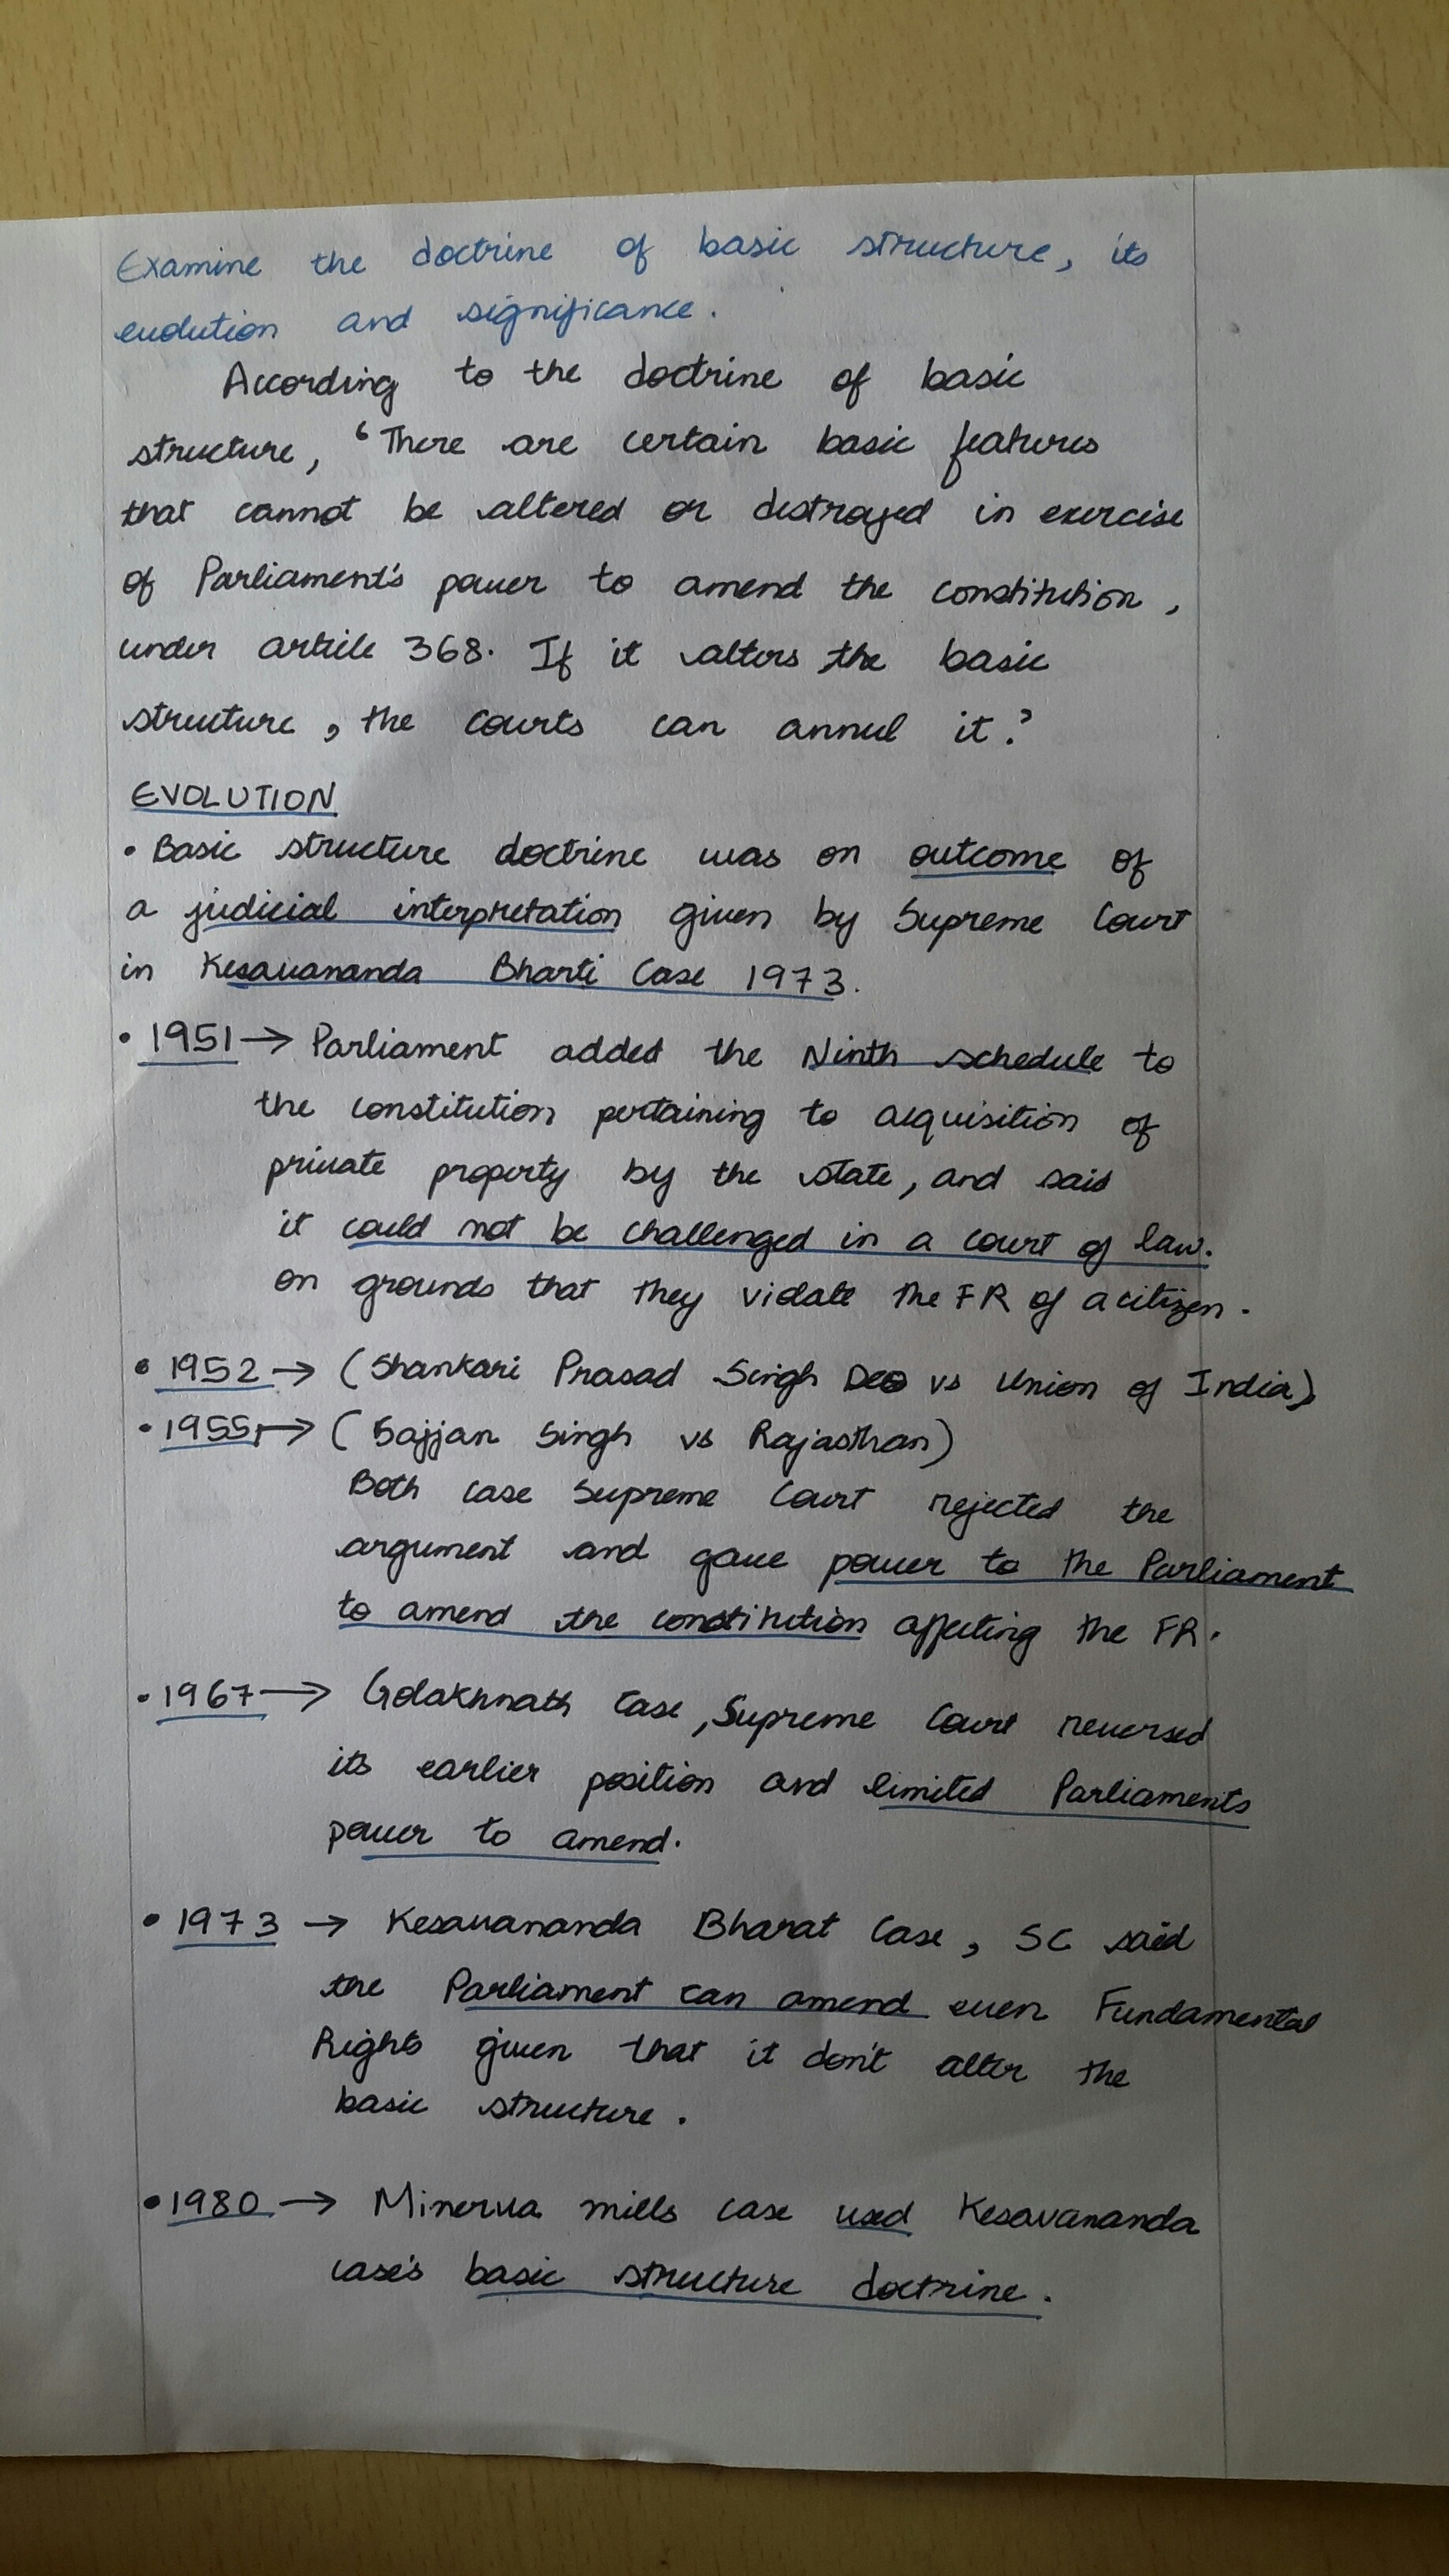 Examine the doctrine of basic structure, its
evolution and significance.
According to the doctrine of basic
structure, 'There are certain basic features
that cannot be altered or destroyed in exercise
of Parliament's power to amend the constitution,
under article 368. If it alters the basic
structure, the courts can annul it.'
EVOLUTION
• Basic structure doctrine was an outcome of
a judicial interpretation given by Supreme Court
in Kesavananda Bharti Case 1973.
• 1951 → Parliament added the Ninth schedule to
the constitution pertaining to acquisition of
private property by the state, and said
it could not be challenged in a court of law.
on grounds that they violate the FR of a citizen.
• 1952 → (Shankari Prasad Singh Deo vs Union of India)
• 1955 → (Sajjan Singh vs Rajasthan)
Both case Supreme Court rejected the
argument and gave power to the Parliament
to amend the constitution affecting the FR.
• 1967 → Golakhnath Case, Supreme Court reversed
its earlier position and limited Parliaments
power to amend.
• 1973 → Kesavananda Bharat Case, SC said
the Parliament can amend even Fundamental
Rights given that it don't alter the
basic structure.
• 1980 → Minerva mills case used Kesavananda
case's basic structure doctrine.